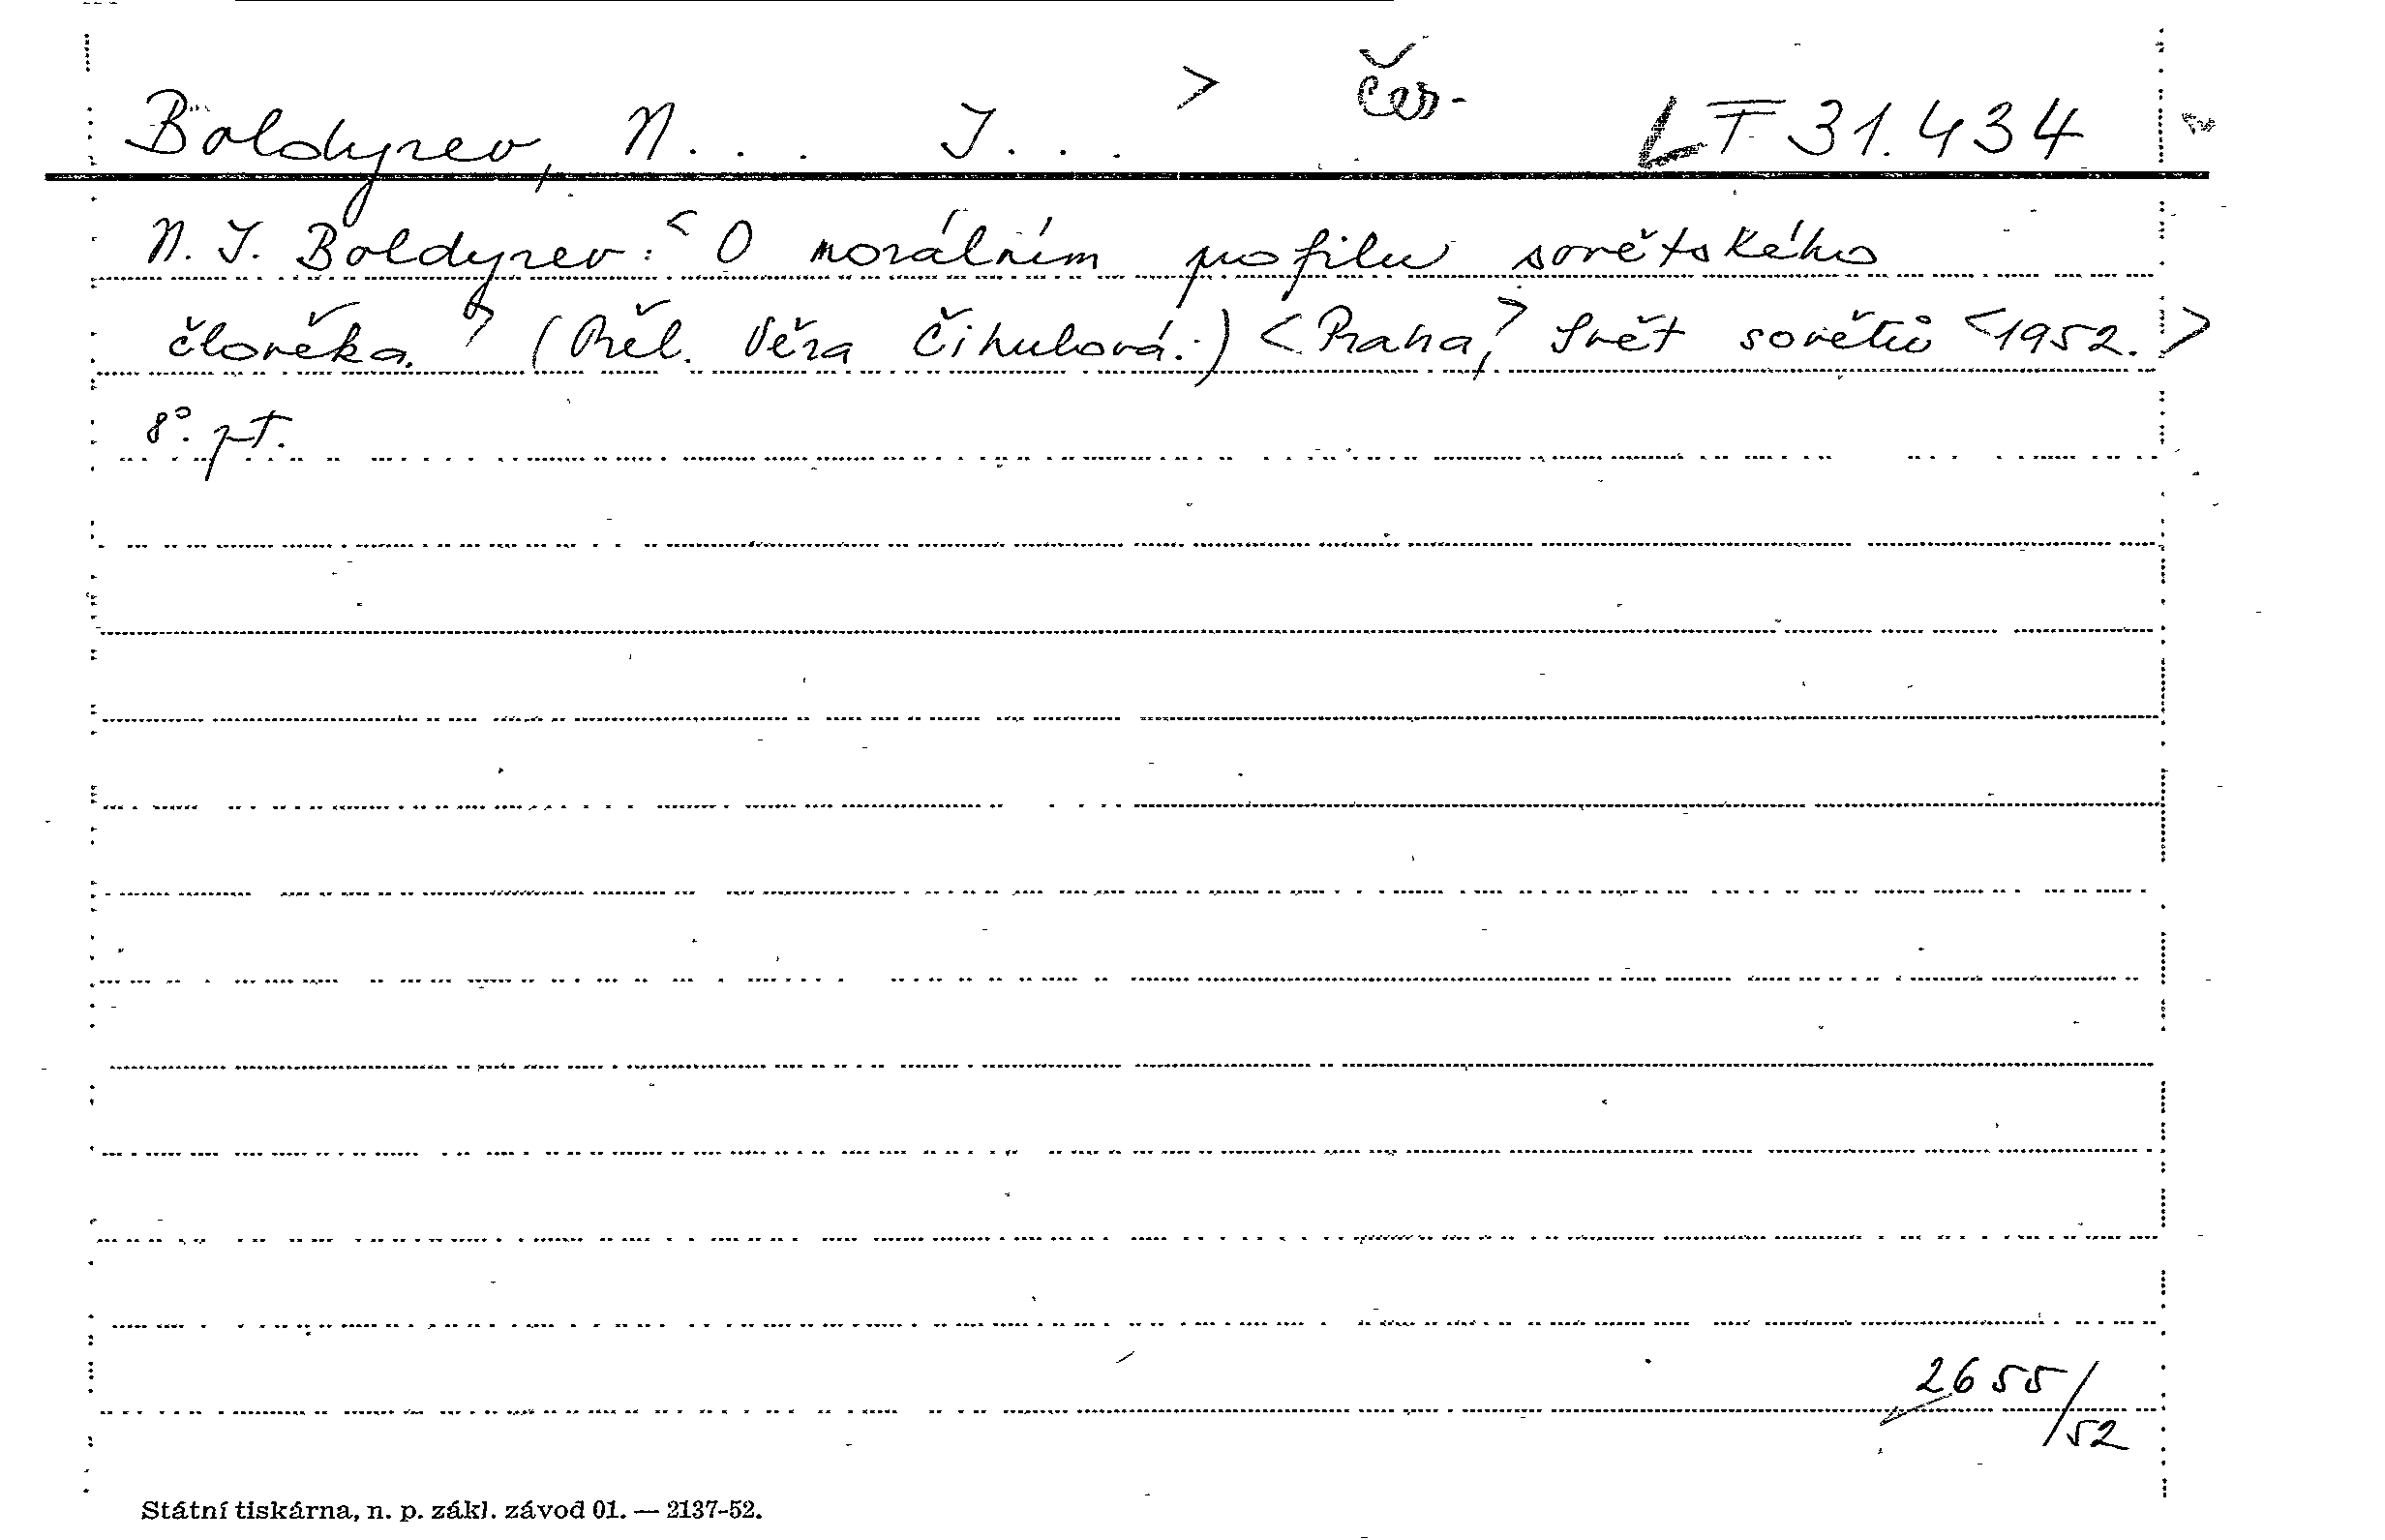 Boldyrev, N... J... > čes. LT 31.434
N. J. Boldyrev: < O morálním profilu sovětského
člověka. > (Přel. Věra Čihulová.) < Praha, > Svět sovětů < 1952. >
8°. pt.
2655/52
Státní tiskárna, n. p. zákl. závod 01. — 2137-52.